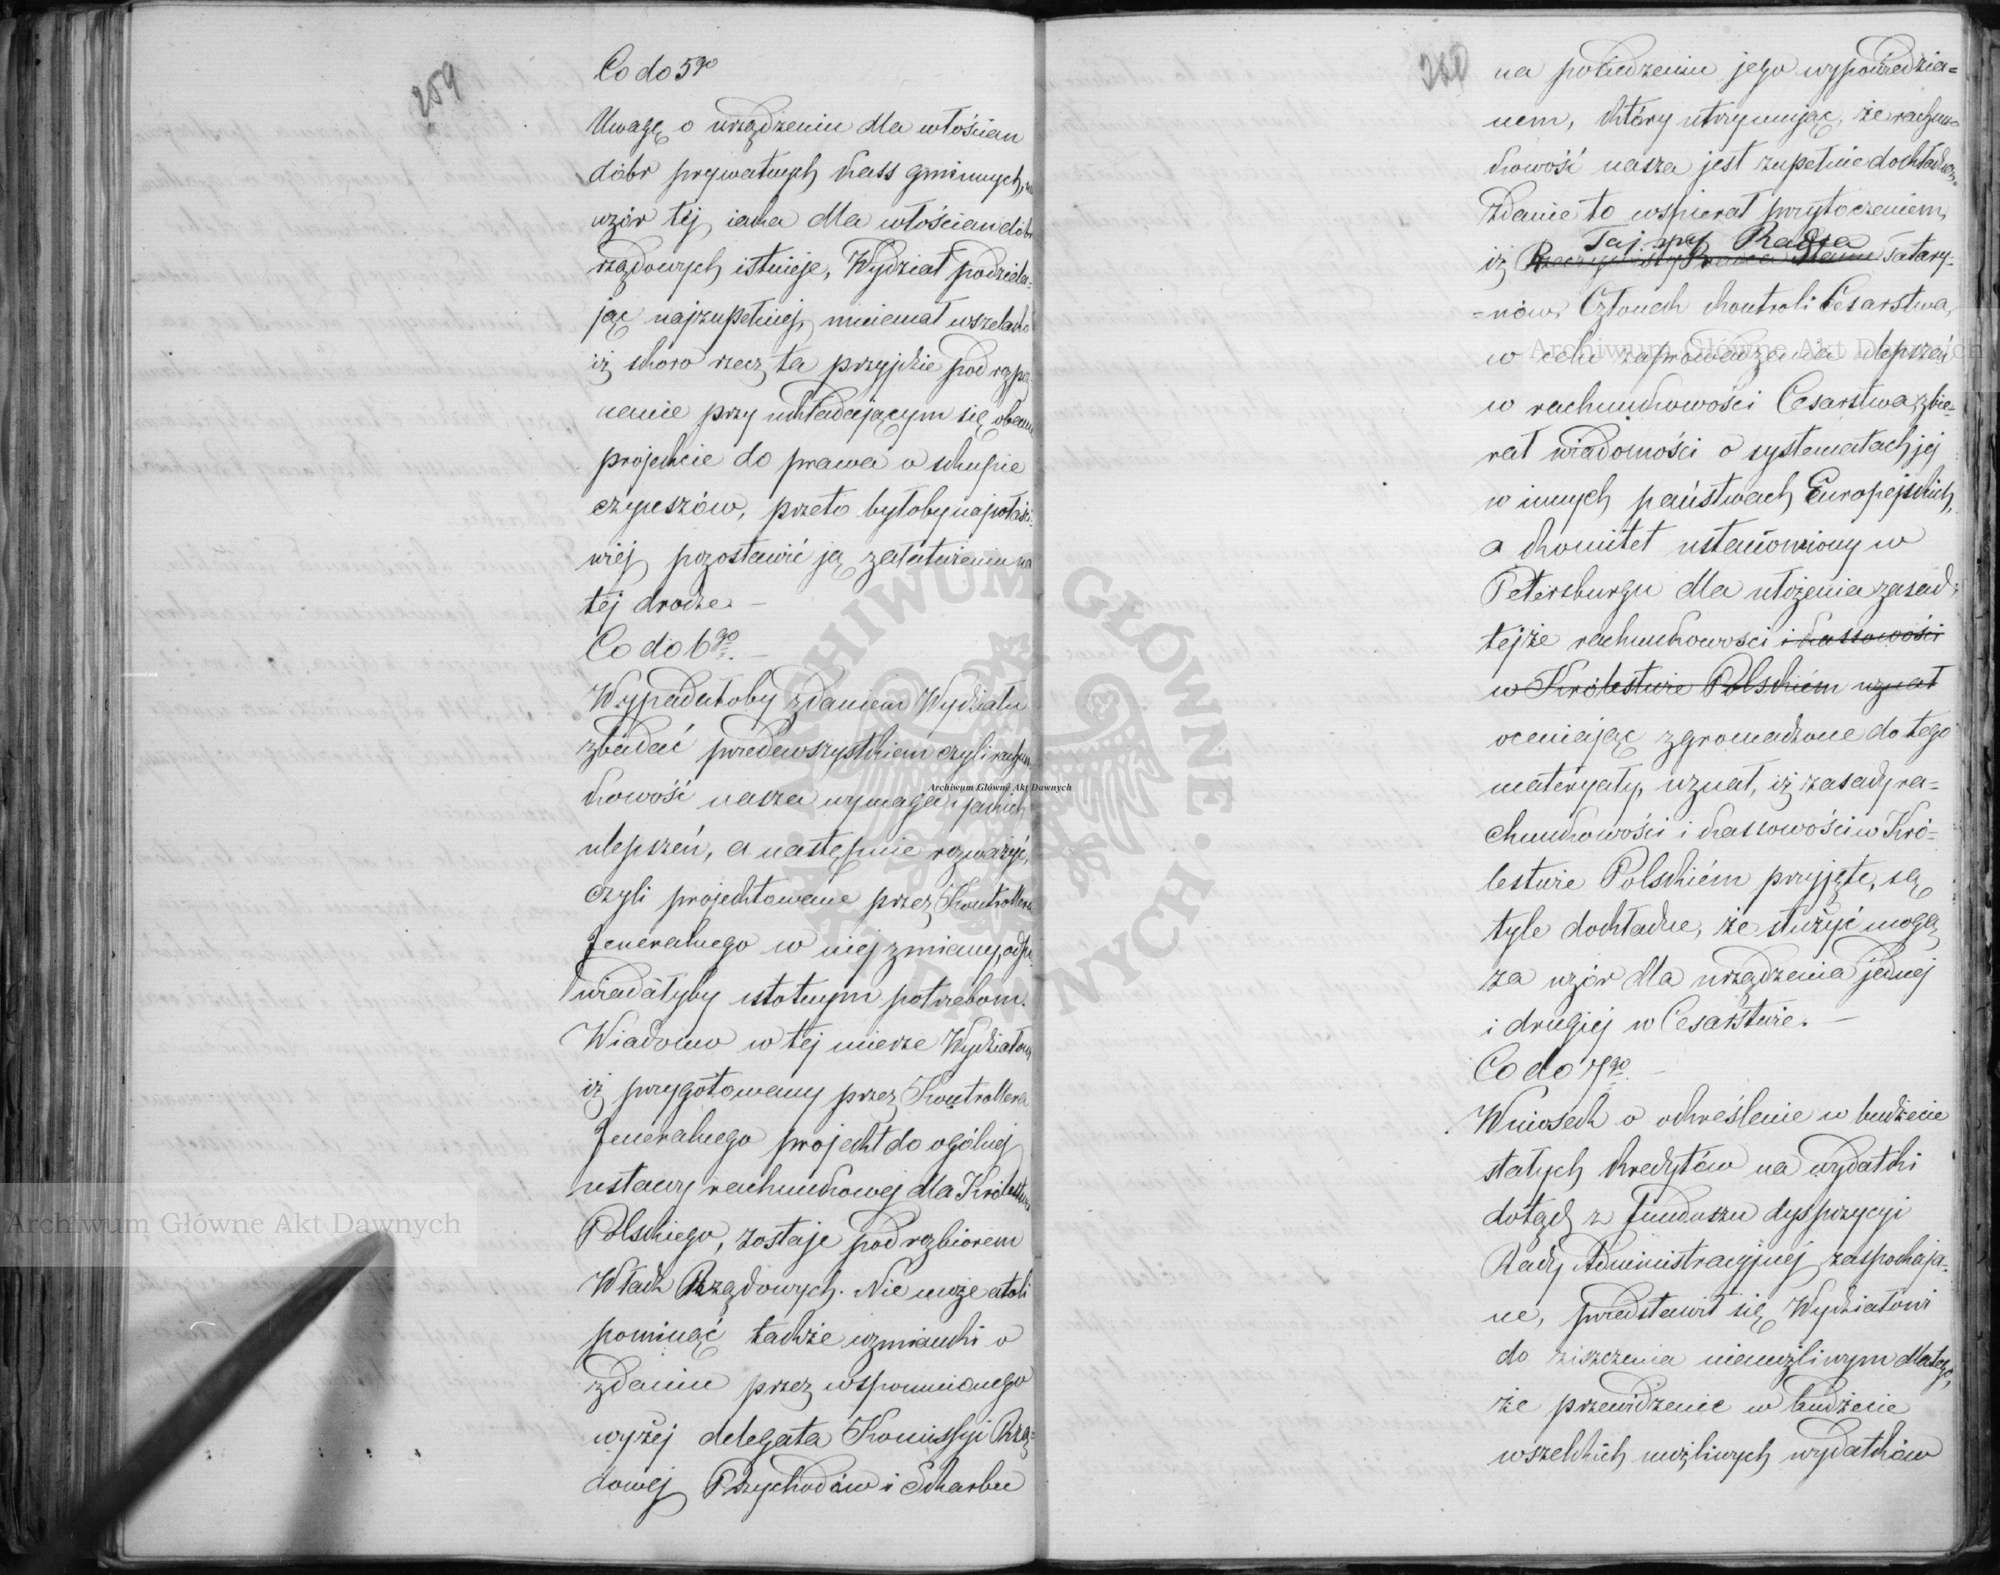 259
Co do 5go
Uwagę o urządzeniu dla włościan
dóbr prywatnych kass gminnych, na
wzór tej, iaka dla włościan dóbr
rządowych istnieje, Wydział podziela-
jąc najzupełniej, mniemał wszelako
iż skoro rzecz ta przyjdzie pod rozpo
nanie przy układającym się obecnie
projekcie do prawa o skupie
czynszów, przeto byłoby najwłaści
wiej pozostawić ją załatwieniu na
tej drodze. —
Co do 6go. —
Wypadałoby zdaniem Wydziału
zbadać przedewszystkiem czyli rachun
kowość nasza wymaga i jakich
ulepszeń, a następnie rozważyć,
czyli projektowane przez Kontrollera
Jeneralnego w niej zmiany, odpo
wiadałyby istotnym potrzebom.
Wiadomo w tej mierze Wydziałowi
iż przygotowany przez Kontrollera
Jeneralnego projekt do ogólnej
ustawy rachunkowej dla Królestwa
Polskiego, zostaje pod rozbiorem
Władz Rządowych. Nie może atoli
pominąć także wzmianki o
zdaniu przez wspomnionego
wyżej delegata Kommissyi Rzą-
dowej Przychodów i Skarbu
260
na posiedzeniu jego wypowiedzia-
nem, który utrzymując, że rachun-
kowość nasza jest zupełnie dokładną,
zdanie to wspierał przytoczeniem,
Taj. Radca
iż Rzeczywisty Radca Stanu Tatary-
-nów, Członek Kontroli Cesarstwa,
w celu zaprowadzenia ulepszeń
w rachunkowości Cesarstwa, zbie-
rał wiadomości o systematach jej
w innych państwach Europejskich,
a komitet ustanowiony w
Petersburgu dla ułożenia zasad
tejże rachunkowości i kassowości
w Królestwie Polskiém uznał
oceniając zgromadzone do tego
materyały, uznał, iż zasady ra-
chunkowości i kassowości w Kró-
lestwie Polskiém przyjęte, są
tyle dokładne, że służyć mogą
za wzór dla urządzenia jednej
i drugiej w Cesarstwie. —
Co do 7go. —
Wniosek o określenie w budżecie
stałych kredytów na wydatki
dotąd z funduszu dyspozycyi
Rady Administracyjnej zaspokaja-
ne, przedstawił się Wydziałowi
do ziszczenia niemożliwym dlatego,
że przewidzenie w budżecie
wszelkich możliwych wydatków
Archiwum Główne Akt Dawnych
Archiwum Główne Akt Dawnych
Archiwum Główne Akt Dawnych
ARCHIWUM GŁÓWNE AKT DAWNYCH